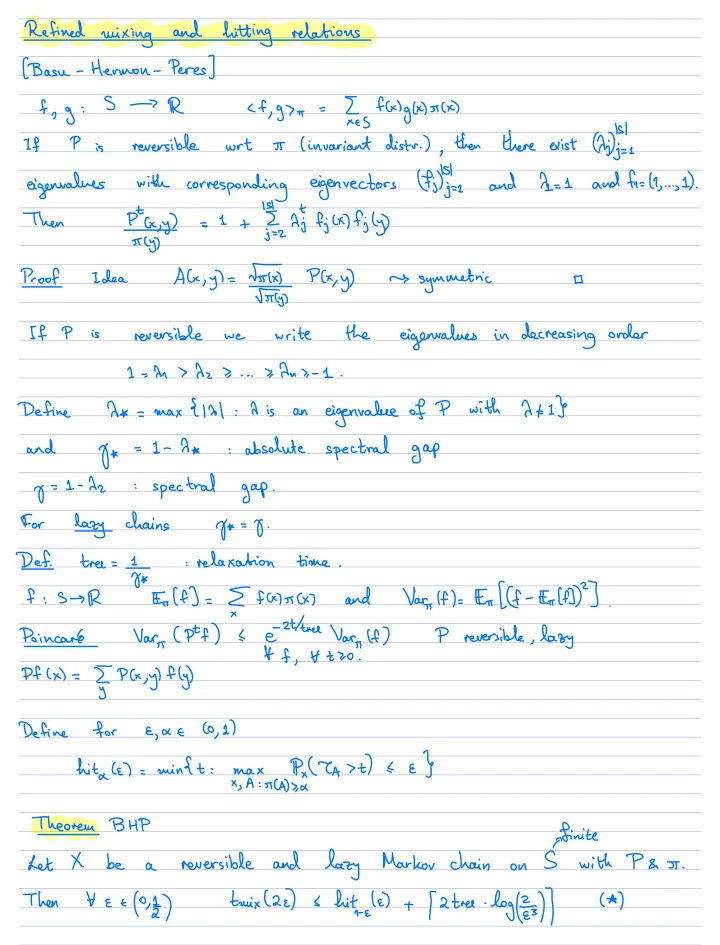 Refined mixing and hitting relations
[Basu - Hermon - Peres]
f, g : S → ℝ    <f,g>_π = Σ_{x∈S} f(x)g(x)π(x)
If P is reversible wrt π (invariant distr.), then there exist (λ_j)_{j=1}^{|S|}
eigenvalues with corresponding eigenvectors (f_j)_{j=2}^{|S|} and λ=1 and f_1=(1,...,1).
Then P^t(x,y)/π(y) = 1 + Σ_{j=2}^{|S|} λ_j^t f_j(x) f_j(y)
Proof Idea A(x,y) = √π(x)/√π(y) P(x,y) ⇝ symmetric □
If P is reversible we write the eigenvalues in decreasing order
1 = λ_1 > λ_2 ≥ ... ≥ λ_n ≥ -1.
Define λ_* = max {|λ| : λ is an eigenvalue of P with λ≠1}
and γ_* = 1 - λ_* : absolute spectral gap
γ = 1 - λ_2 : spectral gap.
For lazy chains γ_* = γ.
Def. t_rel = 1/γ_* : relaxation time.
f : S→ℝ    𝔼_π[f] = Σ_x f(x)π(x) and Var_π(f) = 𝔼_π[(f - 𝔼_π[f])^2].
Poincaré Var_π(P^t f) ≤ e^{-2t/t_rel} Var_π(f)    P reversible, lazy
∀ f, ∀ t≥0.
Pf(x) = Σ_y P(x,y) f(y)
Define for ε, α ∈ (0,1)
hit_α(ε) = min{t : max_{x, A : π(A)≥α} ℙ_x(τ_A > t) ≤ ε}
Theorem BHP
finite
Let X be a reversible and lazy Markov chain on S with P & π.
Then ∀ ε ∈ (0, 1/2)    t_mix(2ε) ≤ hit_{1-ε}(ε) + ⌈2 t_rel · log(2/ε^3)⌉    (*)